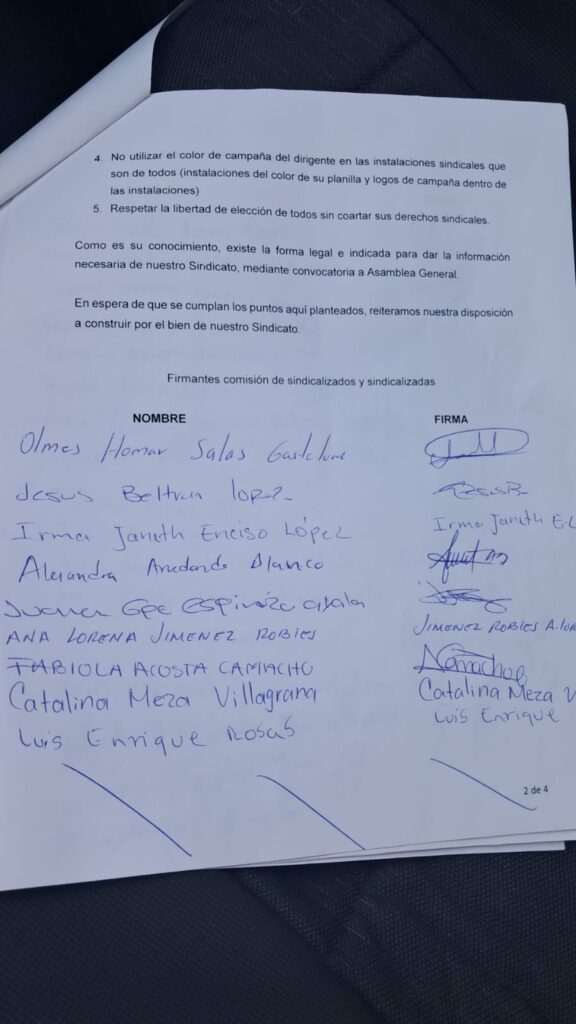 4. No utilizar el color de campaña del dirigente en las instalaciones sindicales que
son de todos (instalaciones del color de su planilla y logos de campaña dentro de
las instalaciones)
5. Respetar la libertad de elección de todos sin coartar sus derechos sindicales.
Como es su conocimiento, existe la forma legal e indicada para dar la información
necesaria de nuestro Sindicato, mediante convocatoria a Asamblea General.
En espera de que se cumplan los puntos aquí planteados, reiteramos nuestra disposición
a construir por el bien de nuestro Sindicato.
Firmantes comisión de sindicalizados y sindicalizadas
NOMBRE FIRMA
Olmes Homar Salas
Jesus Beltran lopez
Irma Janeth Enciso López Irma Janeth E.
Alejandra Arredondo Blanco
Juana Gpe espinoza ayala
ANA LORENA JIMENEZ ROBLES JIMENEZ ROBLES A.
FABIOLA ACOSTA CAMACHO
Catalina Meza Villagrana Catalina Meza V
Luis Enrique Rosas Luis Enrique
2 de 4